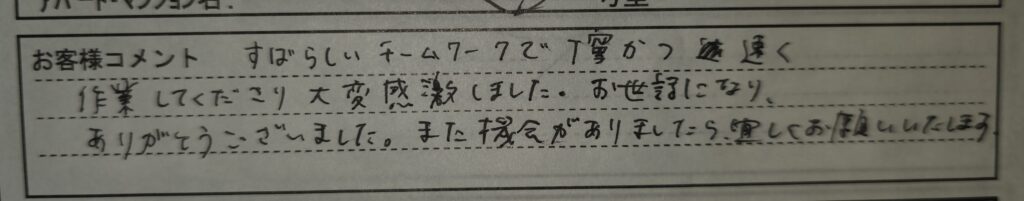 アパート・マンション名:
お客様コメント すばらしいチームワークで丁寧かつ 速く
作業してくださり大変感激しました。お世話になり、
ありがとうございました。また機会がありましたら、宜しくお願いいたします。